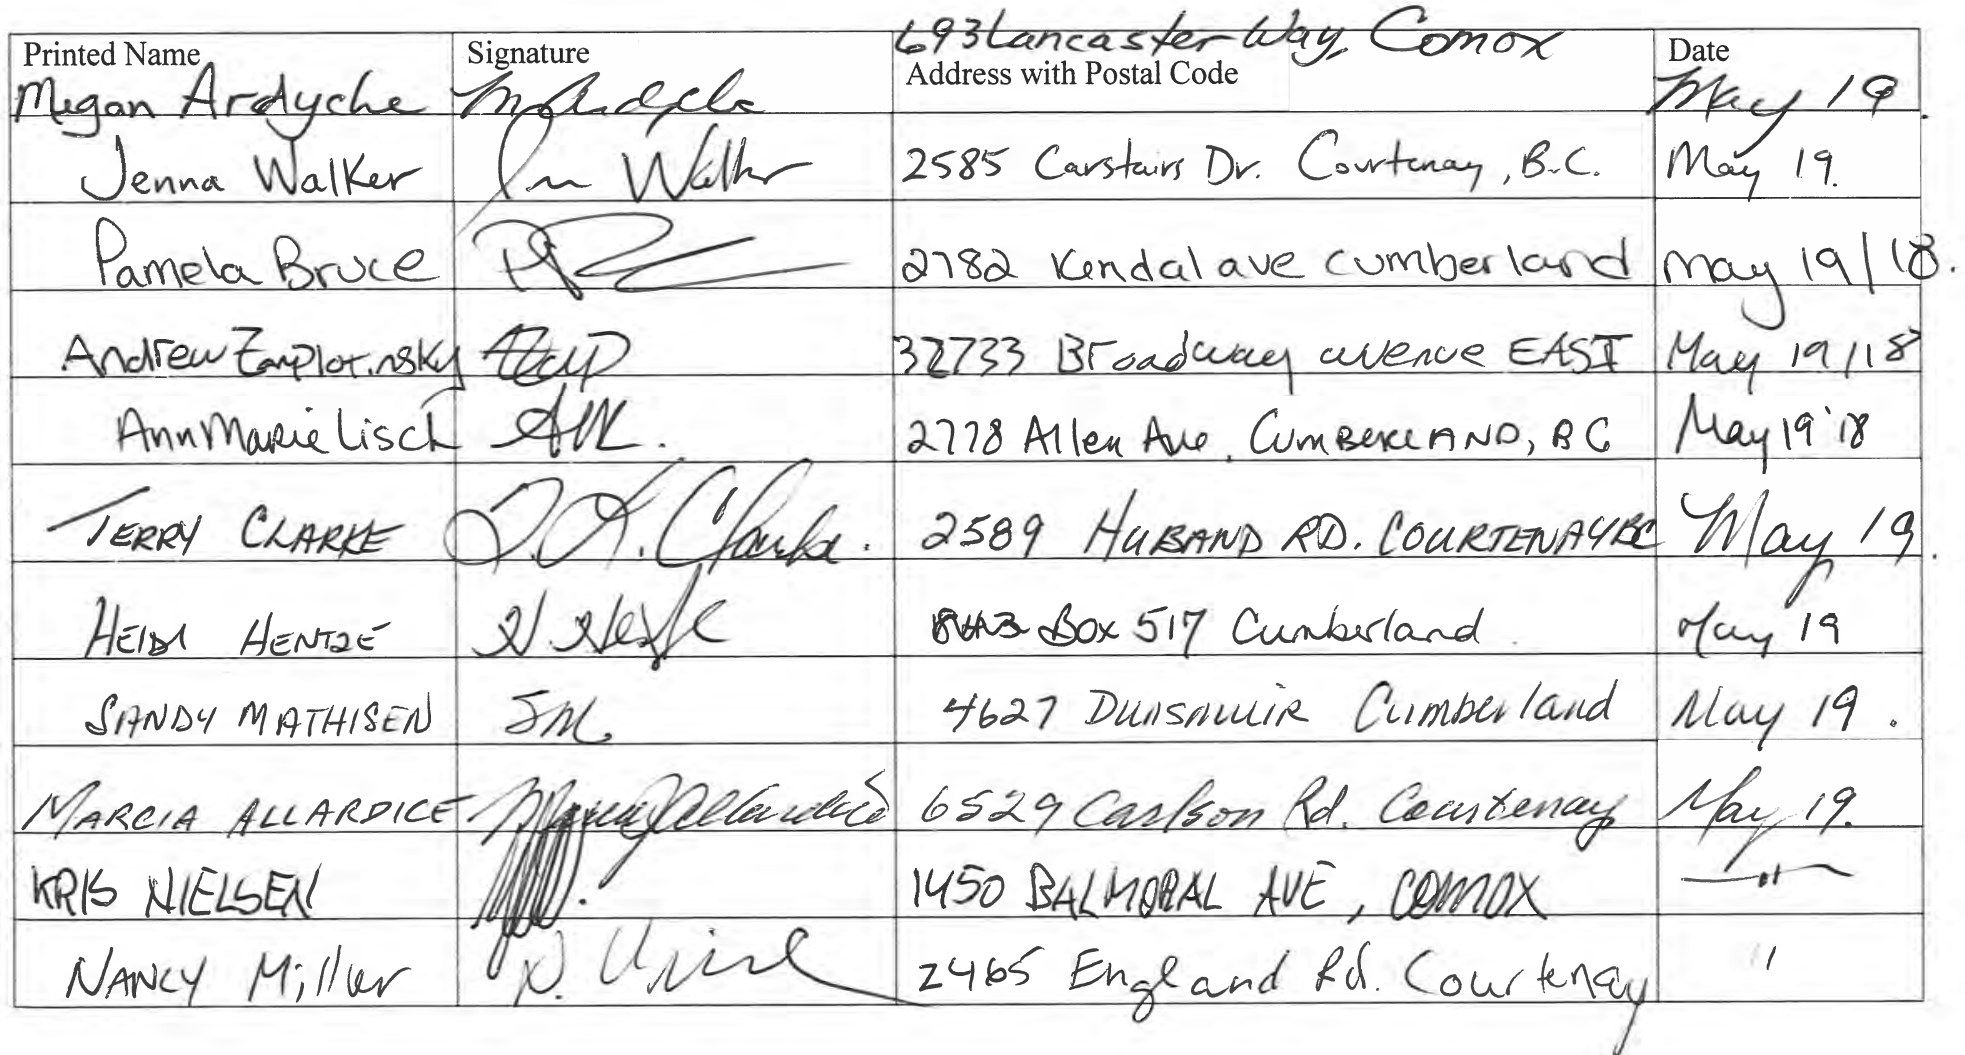 693 Lancaster Way, Comox
Printed Name Signature Address with Postal Code Date
Megan Ardyche May 19.
Jenna Walker Jnn Walker 2585 Carstairs Dr. Courtenay, B.C. May 19.
Pamela Bruce 2782 Kendal ave cumberland May 19/18.
Andrew Zamplotinsky 32733 Broadway avenue EAST May 19/18
AnnMarie Lisch 2778 Allen Ave, CUMBERLAND, BC May 19 '18
TERRY CLARKE T. K. Clarke. 2589 HUBAND RD. COURTENAY BC May 19.
HEIDI HENTZE H Hentze Box 517 Cumberland May 19
SANDY MATHISEN SM. 4627 Dunsmuir Cumberland May 19.
MARCIA ALLARDICE Marcia Allardice 6529 Carlson Rd. Courtenay May 19.
KRIS NIELSEN 1450 BALMORAL AVE, COMOX —"—
NANCY Miller N. Miller 2465 England Rd. Courtenay "